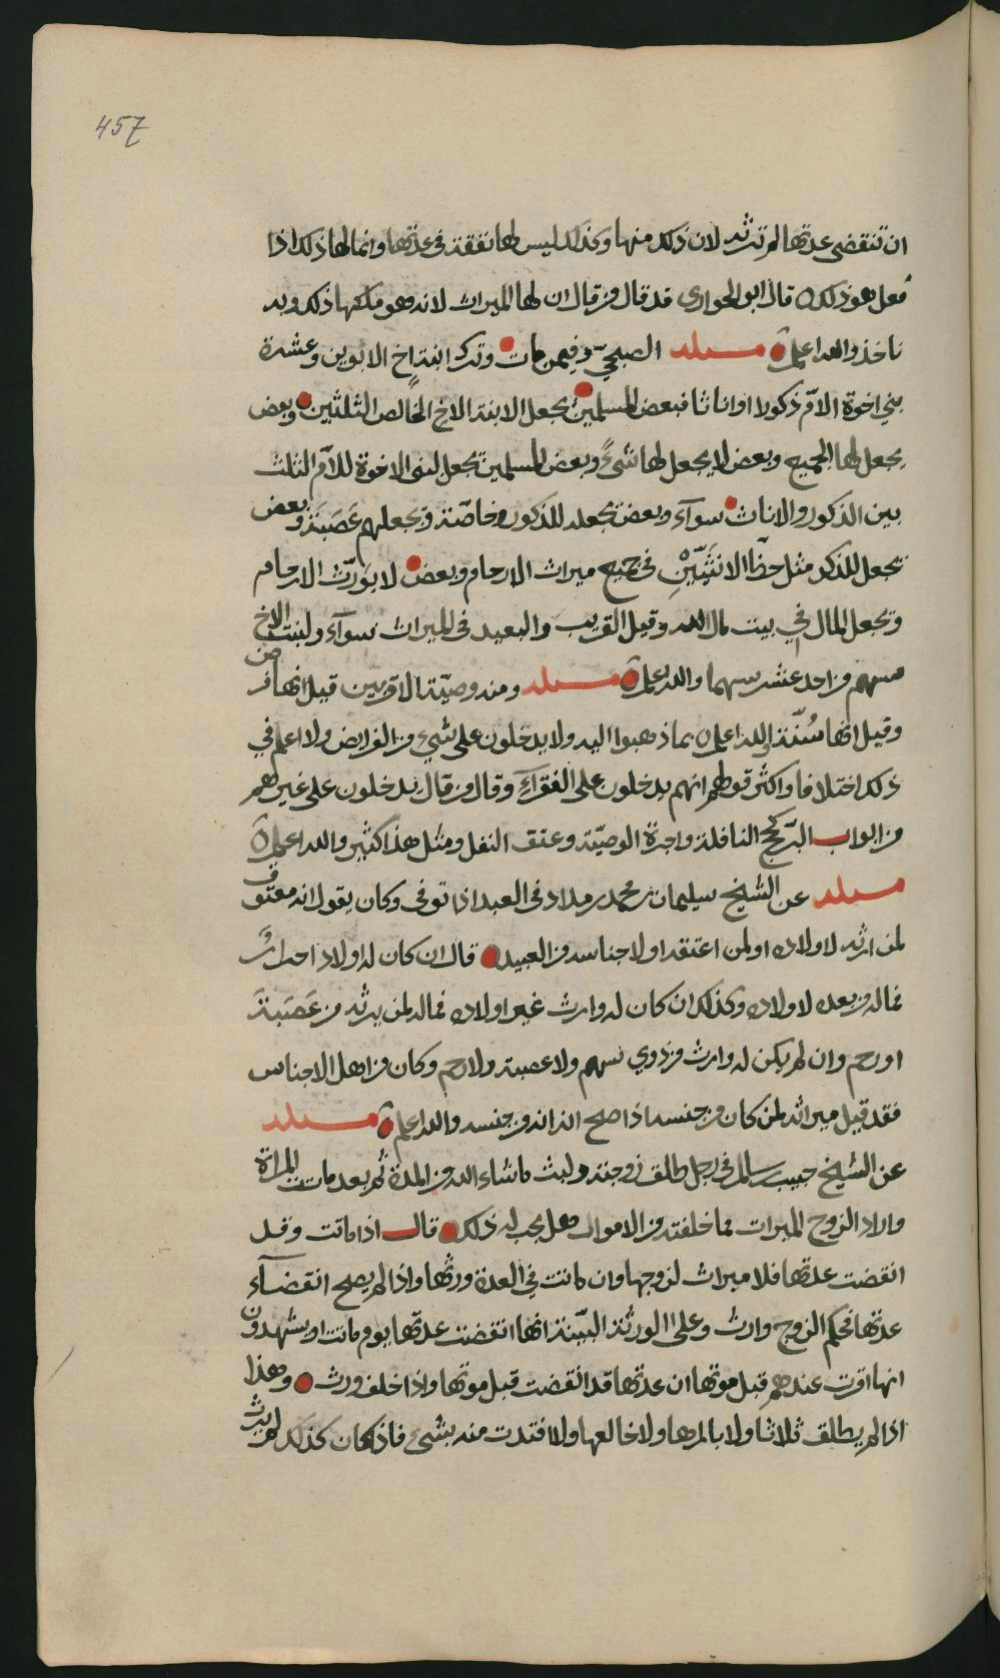 457
ان تنقضي عدتها لم ترثه لان ذلك منها وكذلك ليس لها نفقة في عدتها وانما لها ذلك اذا
فعل هو ذلك قال ابو الحواري قد قال من قال ان لها الميراث لانه هو ملكها ذلك وبه
ناخذ والله اعلم مسئله الصبحي وفيمن مات وترك ابنة اخ الابوين وعشرة
بني اخوة الام ذكورا او اناثا فبعض المسلمين يجعل لابنة الاخ الخالص الثلثين وبعض
يجعل لها الجميع وبعض لا يجعل لها شيء وبعض المسلمين يجعل لبني الاخوة للام الثلث
بين الذكور والاناث سوآء وبعض يجعله للذكور خاصّة ويجعلهم عَصَبَة وبعض
يجعل للذكر مثل حظّ الانثَيَيْنِ في جميع ميراث الارحام وبعض لا يورّث الارحام
ويجعل المال في بيت مال الله وقيل القريب والبعيد في الميراث سوآء ولبنت الاخ
سهم من احد عشر سهما والله اعلم مسئله ومنه وصيّة الاقربين قيل انها فرض
وقيل انها سُنّة والله اعلم بما ذهبوا اليه ولا يدخلون على شيء من الفرايض ولا اعلم في
ذلك اختلافا واكثر قولهم انهم يدخلون على الفقرآء وقال من قال يدخلون على غيرهم
من ابواب البرّ كحج النافلة واجرة الوصيّة وعتق النفل ومثل هذا كثير والله اعلم
مسئله عن الشيخ سليمان بن محمد بن مداد في العبد اذا توفي وكان يقول انه معتوق
لمن ارثه لاولاده او لمن اعتقه او لاجناسه من العبيد قال ان كان له اولاد احرارٌ
فماله من بعده لاولاده وكذلك ان كان له وارث غير اولاده فماله لمن يرثه من عَصَبَة
او رحم وان لم يكن له وارث من ذوي سهم ولا عصبة ولا رحم وكان من اهل الاجناس
فقد قيل ميراثه لمن كان من جنسه اذا صح انه من جنسه والله اعلم مسئله
عن الشيخ حبيب بن سالم في رجل طلق زوجته ولبث ما شاء الله من المدة ثم بعد ماتت المراة
واراد الزوج الميراث مما خلفته من الاموال هل يجب له ذلك قال اذا ماتت وقد
انقضت عدتها فلا ميراث لزوجها وان ماتت في العدة ورثها واذا لم يصح انقضآء
عدتها فحكم الزوج وارث وعلى الورثة البيّنة انها انقضت عدتها يوم ماتت او يشهدون
انها اقرت عندهم قبل موتها ان عدتها قد انقضت قبل موتها واذا حلف ورث وهذا
اذا لم يطلق ثلاثا ولا بالمرها ولا خالعها ولا افتدت منه بشيء فاذا كان كذلك لم يرث